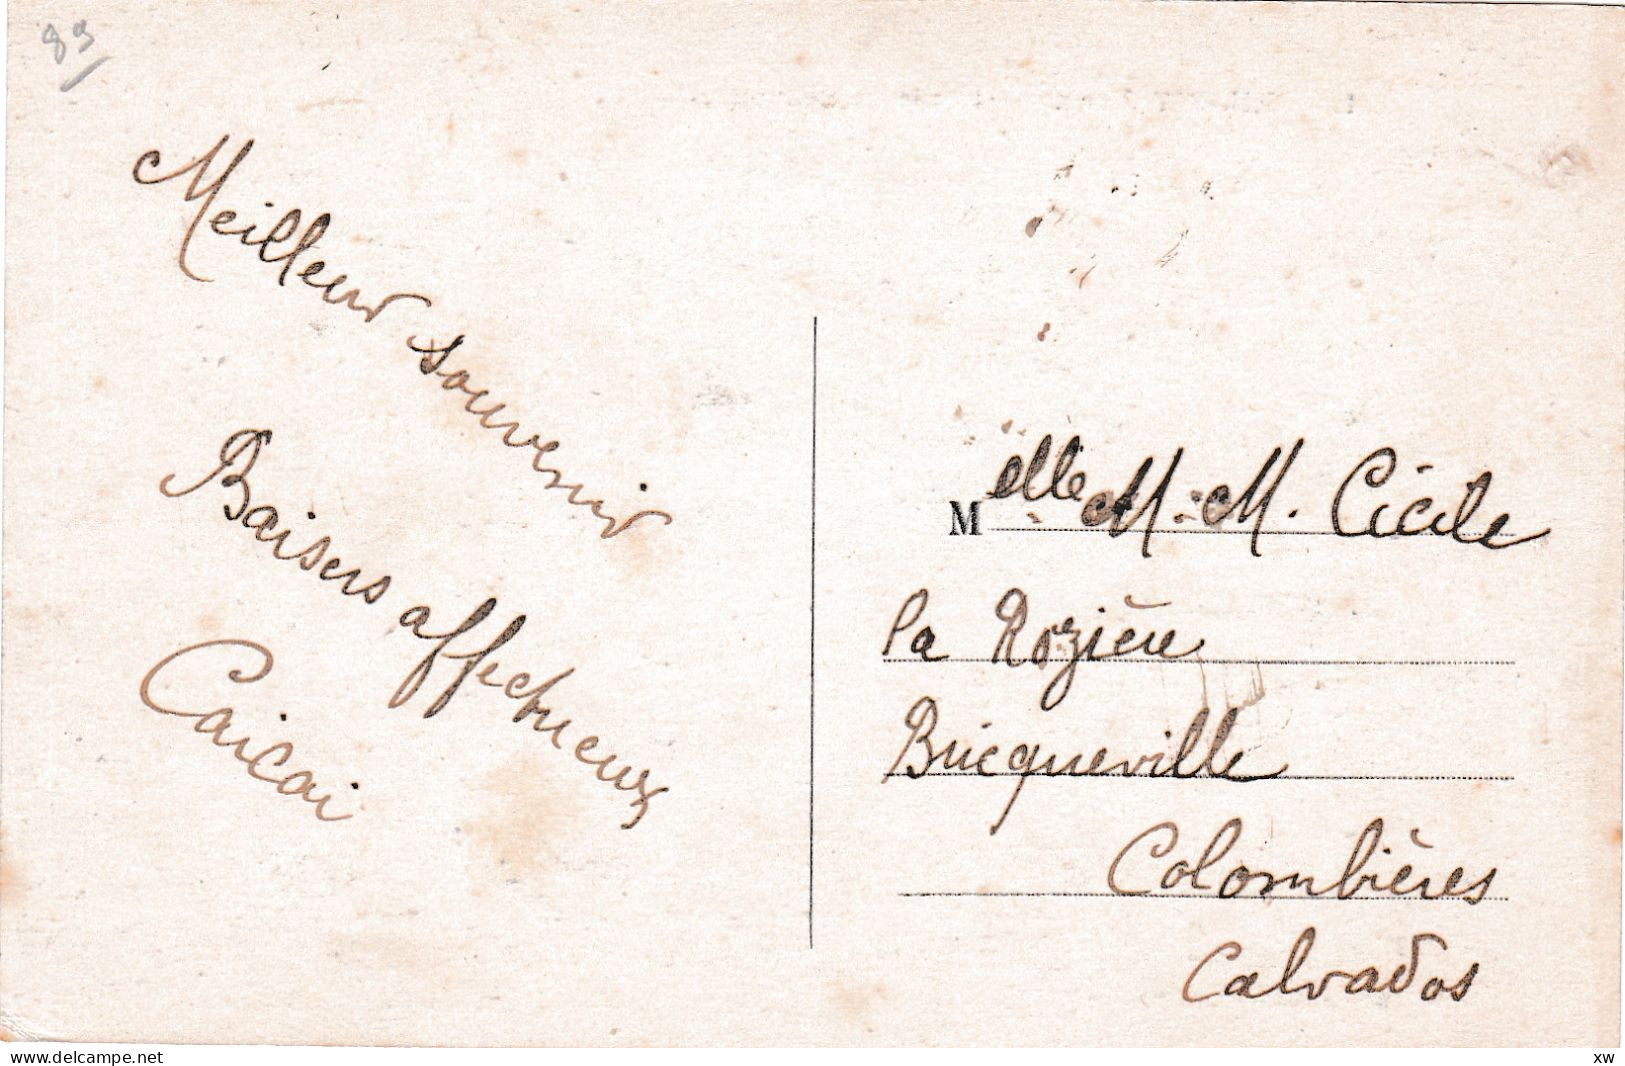 89
Meilleur souvenir
Baisers affectueux
Caicai
Melle M. M. Cécile
la Rozière
Bricqueville
Colombières
Calvados
www.delcampe.net
xw